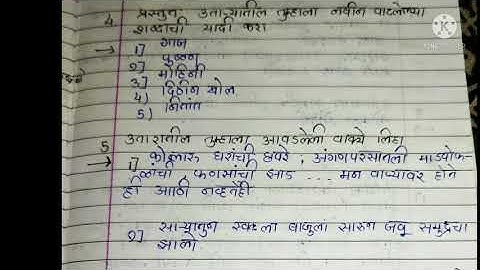 4. प्रस्तुत उताऱ्यातील तुम्हाला नवीन वाटलेल्या
शब्दांची यादी करा
→ 1] गाज
2] कृष्ण
3] मोहिनी
4) दिठीन खोल
5) नितांत
5 उताऱ्यातील तुम्हाला आवडलेली वाक्ये लिहा
→ 1] कौलारू घरांची छपरे, अंगणपरसातली माडपोफ-
ळीची, फणसांची झाड ... मन वाऱ्यावर होते
ही आठी नव्हतेही
2] साऱ्यातुन स्वतःला बाजुला सारुन जवु समुद्रचा
झालो